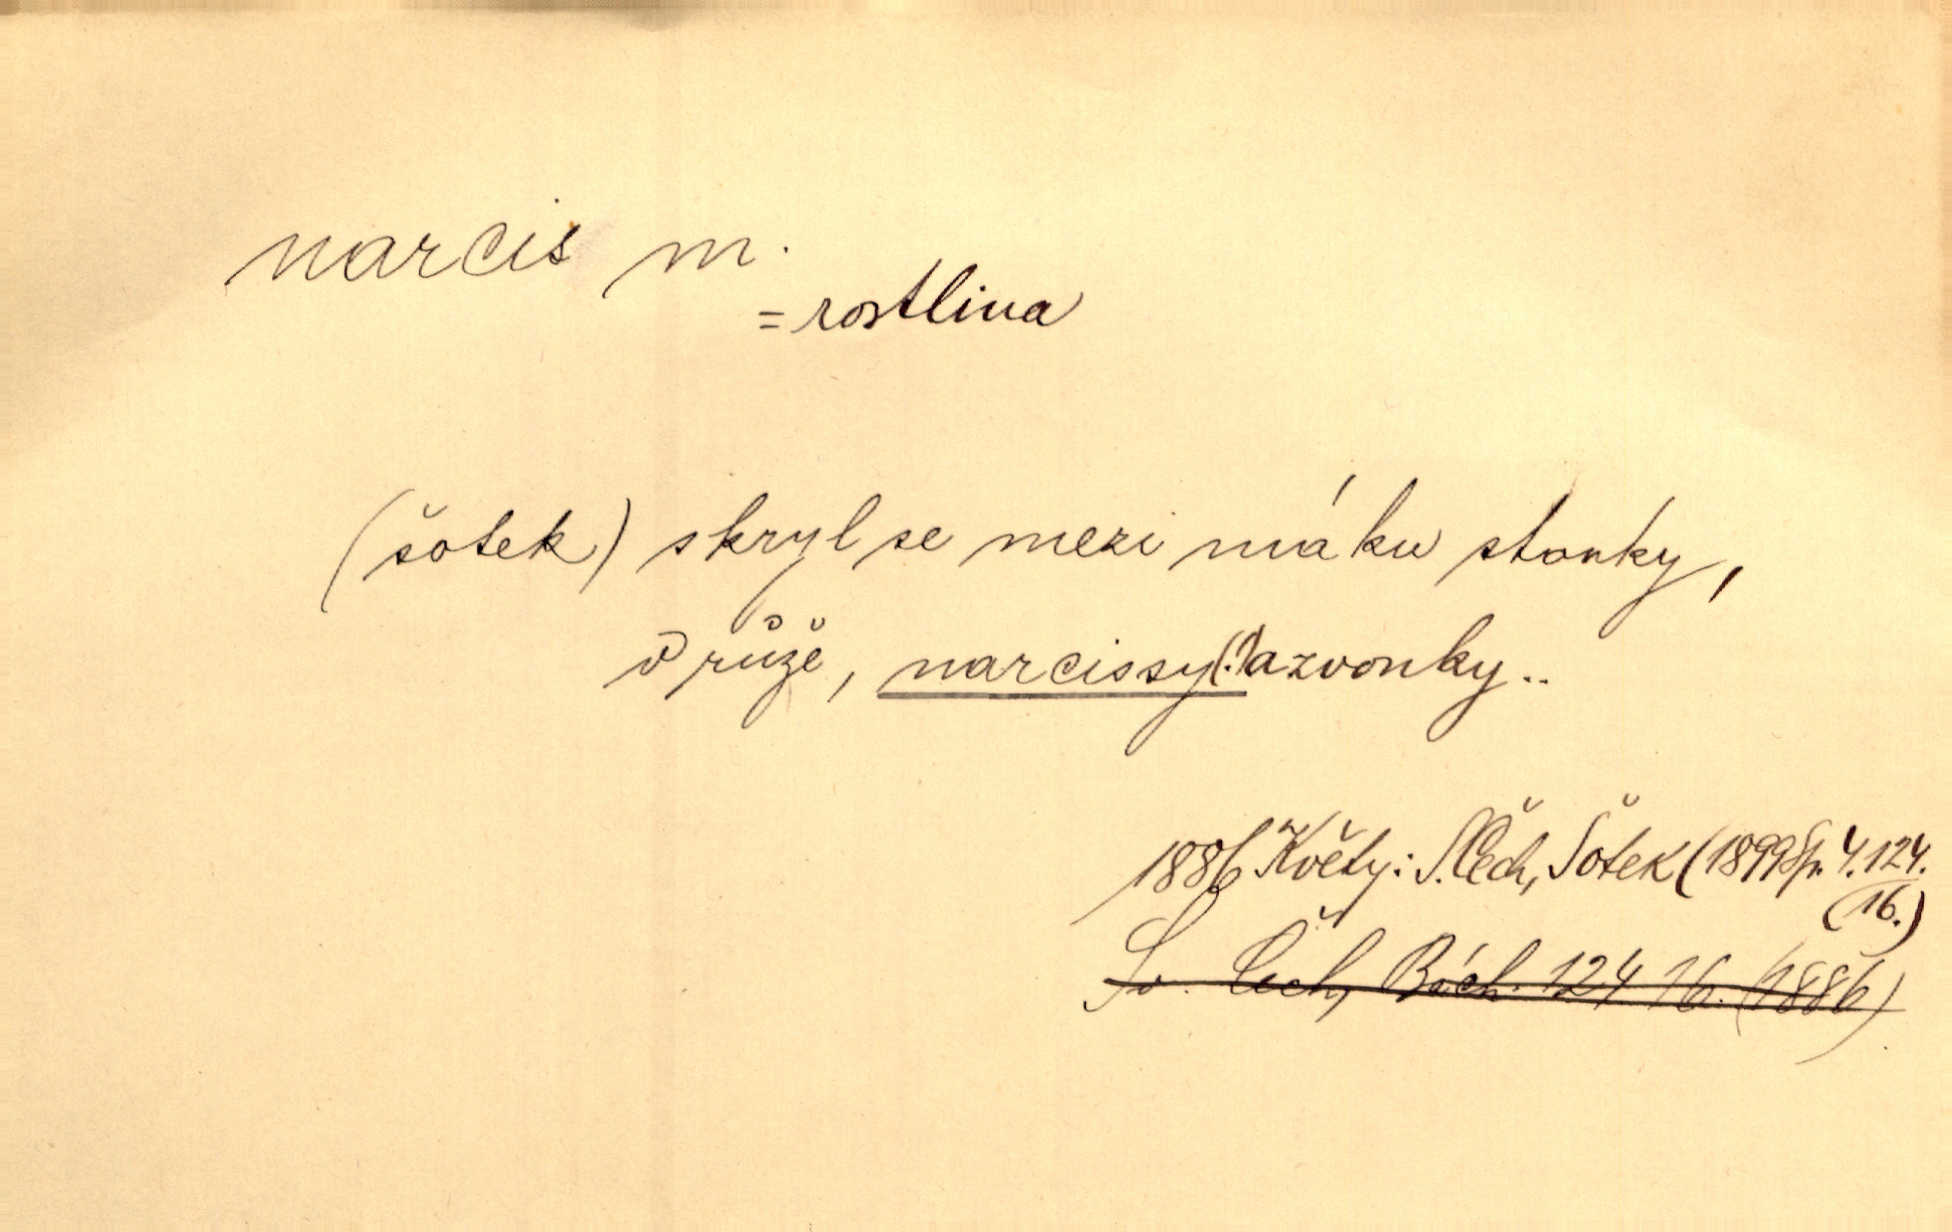 narcis m.
= rostlina
(šotek) skryl se mezi máku stonky,
v růže, narcissy(!) a zvonky..
1886 Květy: S. Čech, Šotek (1899 Sp. 4.124.
(16.)
Sv. Čech, Bách. 124 16. (1886)